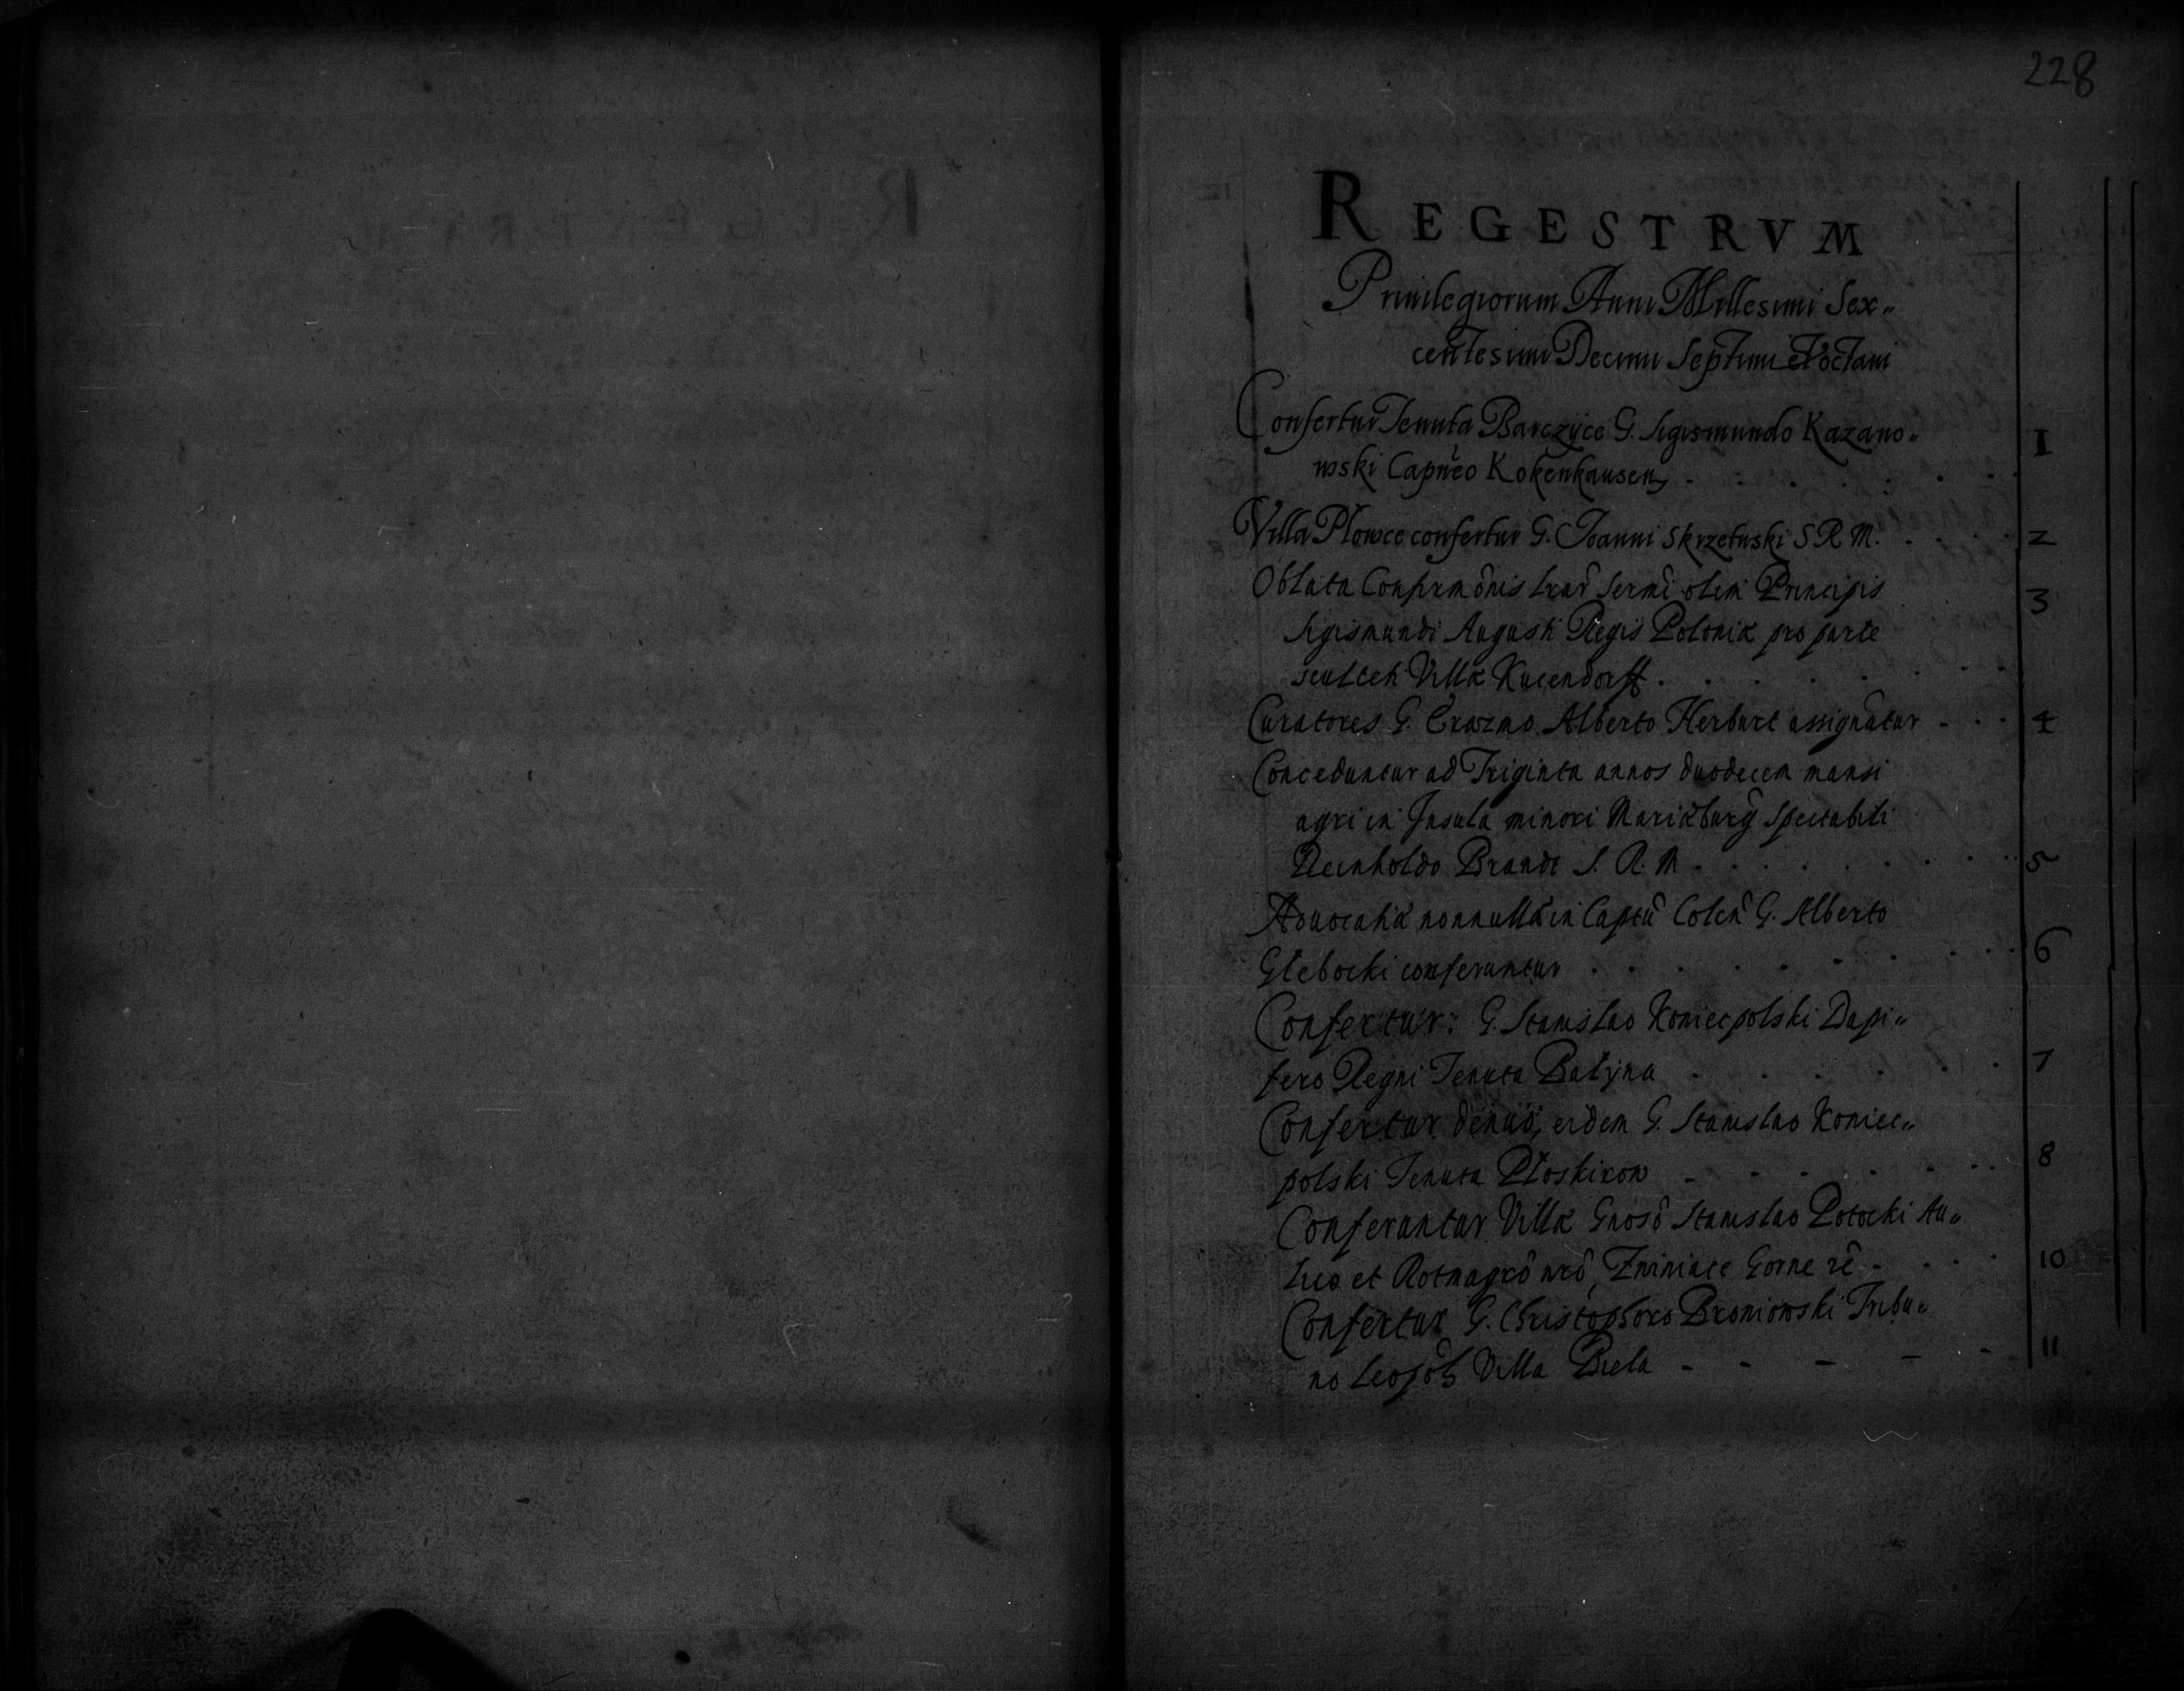 228
REGESTRVM
Priuilegiorum Anni Millesimi Sex„
centesimi Decimi Septimi et octaui
Confertur Tenuta Barczyce G. Sigismundo Kazano„
wski Capneo Kokenhausen 1
Villa Płowce confertur G. Joanni Skrzetuski S R M. 2
Oblata Confirmonis lrar Sermi olim Principis 3
Sigismundi Augusti Regis Poloniæ pro parte
sculteti Villæ Kucendorff.
Curatores G. Erazmo Alberto Herburt assignatur 4
Conceduntur ad Triginta annos duodecem mansi
agri in Insula minori Mariæburg Spectabili
Reinholdo Brandt S. R. M 5
Aduocatiæ nonnullæ in Captu Colen G. Alberto
Głebocki conferuntur 6
Confertur: G. Stanislao Koniecpolski Dapi„
fero Regni Tenuta Bałyna 7
Confertur denuo, eidem G. Stanislao Koniec„
polski Tenuta Płoskirow 8
Conferuntur Villæ Gnoso Stanislao Potocki Au„
lico et Rotmagro nro, Zwiniace Gorne 10
Confertur G. Christophoro Broniowski Tribu„
no Leopol Villa Biela 11